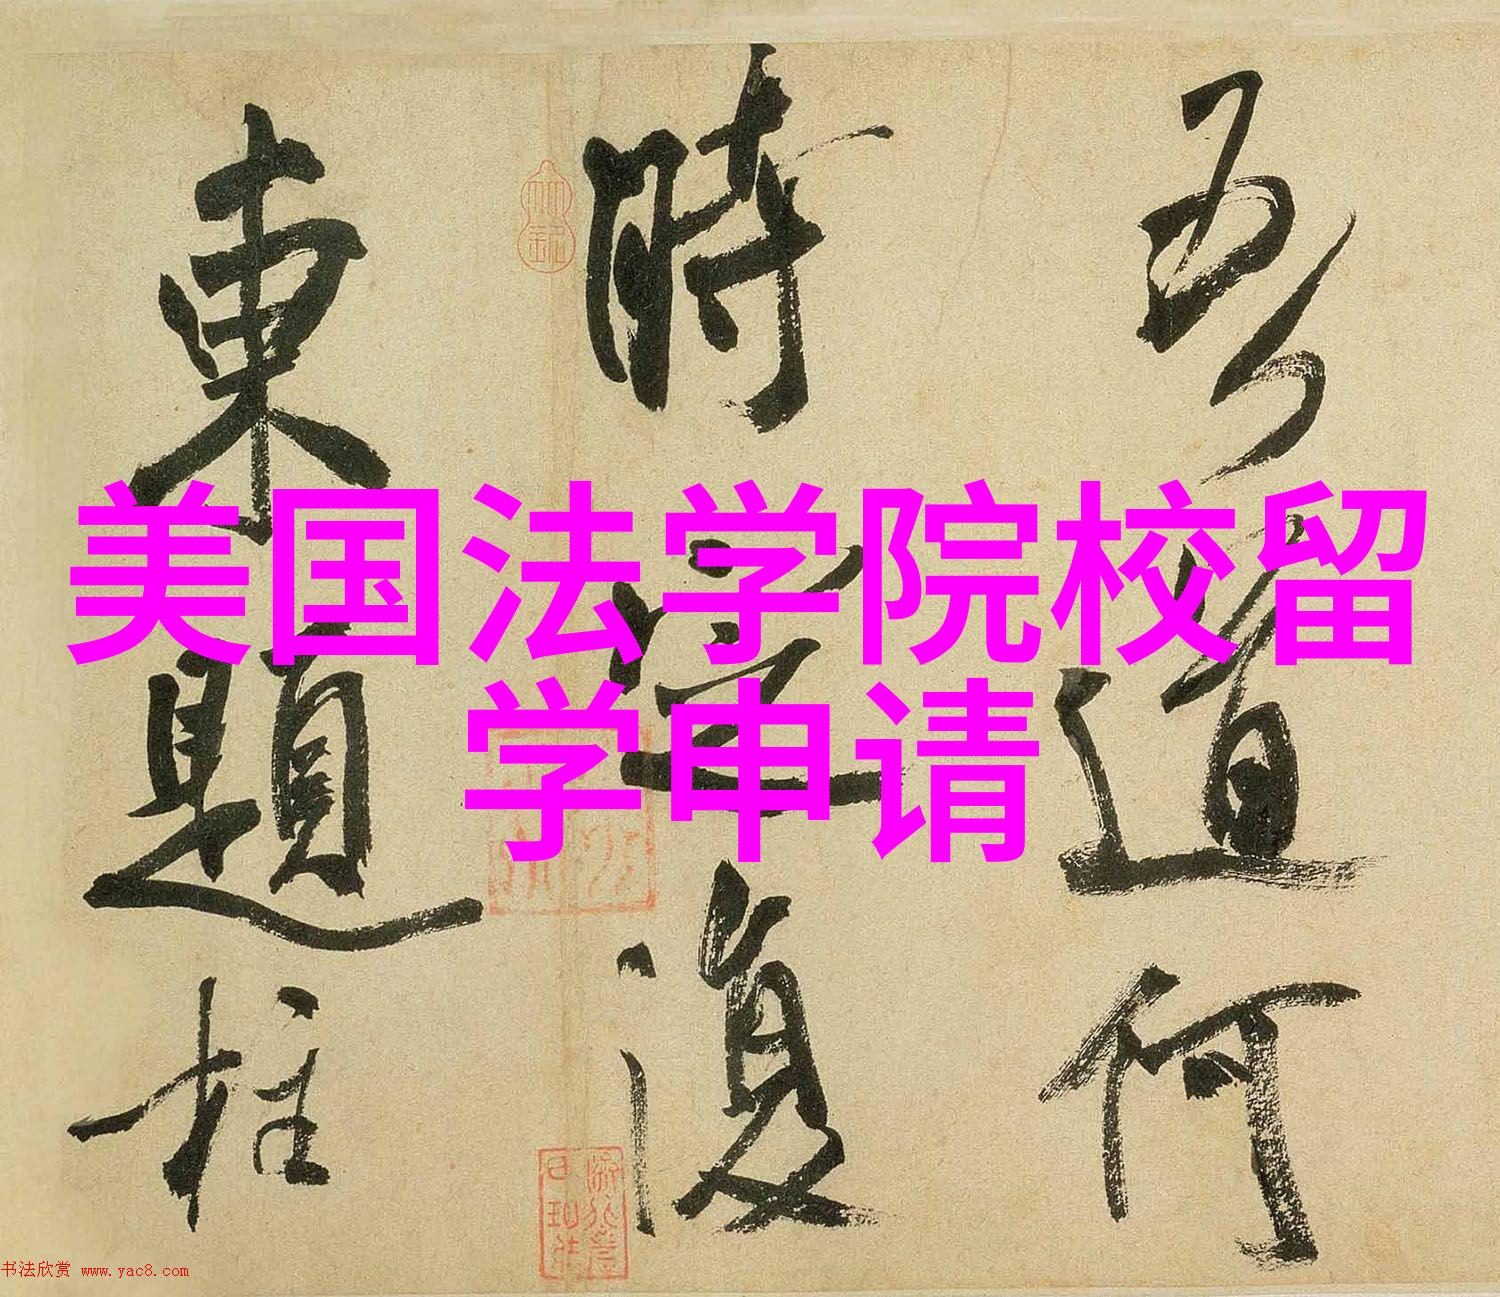 吾道何
時定復
東題柱
美国法学院校留
学申请
书法欣赏 www.yac8.com